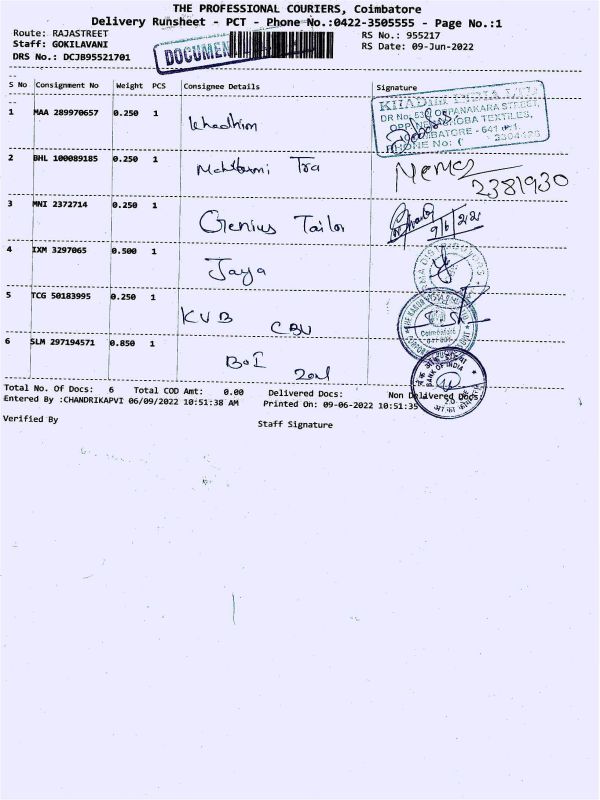 THE PROFESSIONAL COURIERS, Coimbatore
Delivery Runsheet - PCT - Phone No.:0422-3505555 - Page No.:1
Route: RAJASTREET
RS No.: 955217
Staff: GOKILAVANI
RS Date: 09-Jun-2022
DRS No.: DCJB95521701
DOCUMEN
S No Consignment No Weight PCS Consignee Details Signature
1 MAA 289970657 0.250 1 Khadhim
KHADIM INDIA LTD
DR No. 53, OPPANAKARA STREET,
TEXTILES,
COIMBATORE - 641 001.
PHONE No: ( 2304426
2 BHL 100089185 0.250 1 Tra
2381930
3 MNI 2372714 0.250 1 Genius Tailor
9/6/2022
4 IXM 3297065 0.500 1 Jaya
5 TCG 50183995 0.250 1 KVB CBU
Coimbatore
6 SLM 297194571 0.850 1 BoI Zonal
BANK OF INDIA
Total No. Of Docs: 6 Total COD Amt: 0.00 Delivered Docs: Non Delivered Docs:
Entered By :CHANDRIKAPVI 06/09/2022 10:51:38 AM Printed On: 09-06-2022 10:51:35
Verified By
Staff Signature